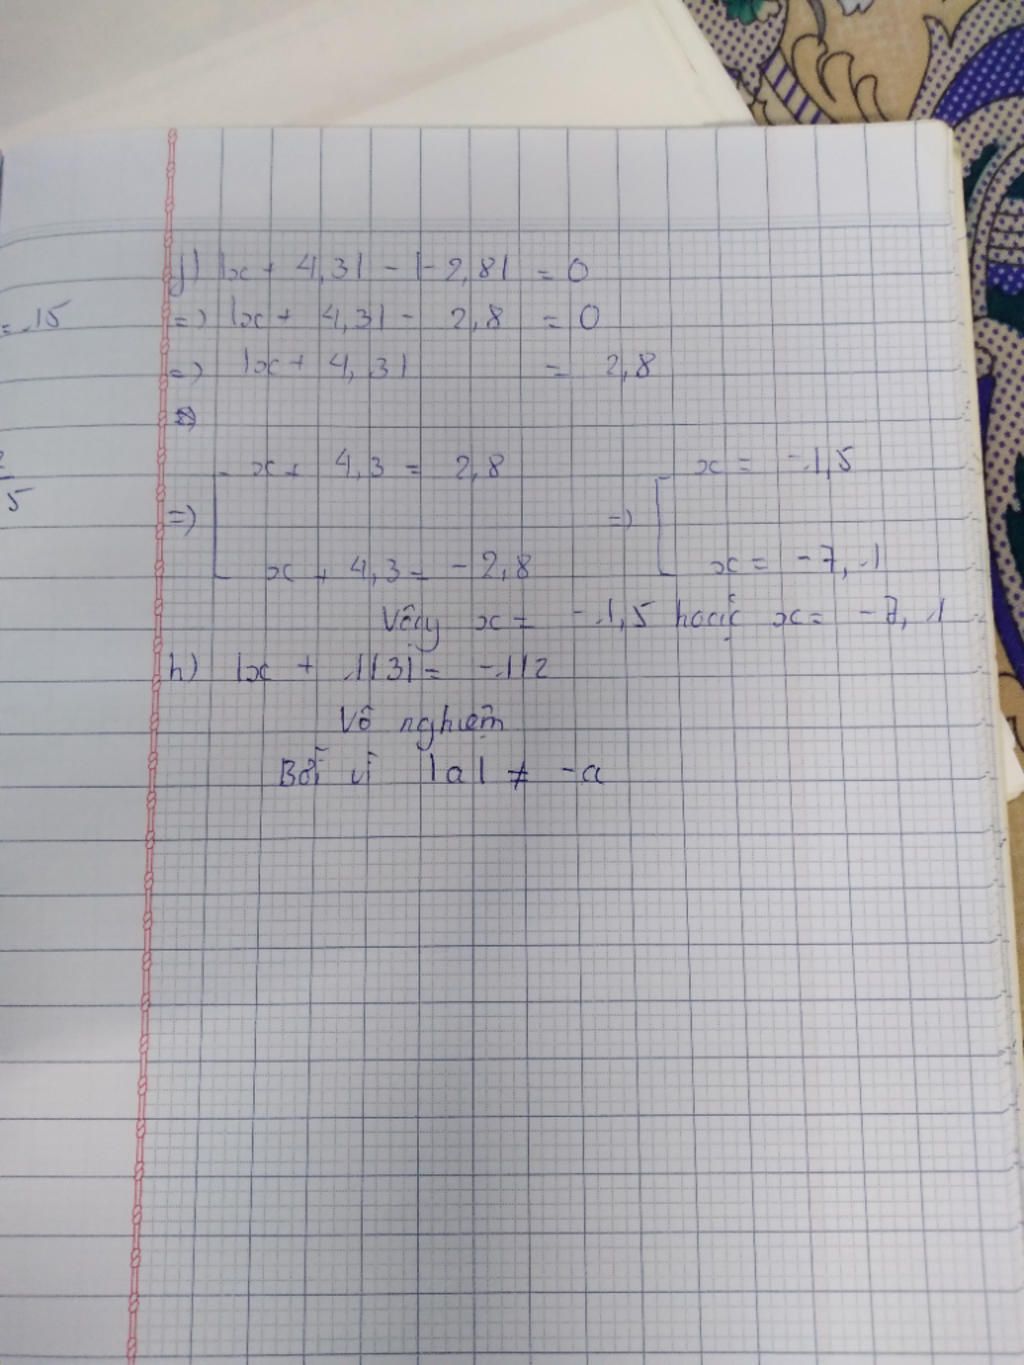 = 15
5
j) |x + 4,3| - |-2,8| = 0
=) |x + 4,3| - 2,8 = 0
=) |x + 4,3| = 2,8
x + 4,3 = 2,8 x = -1,5
=) =)
x + 4,3 = -2,8 x = -7,1
Vậy x = -1,5 hoặc x = -7,1
h) |x + 1|3| = -1|2
Vô nghiệm
Bởi vì |a| ≠ -a